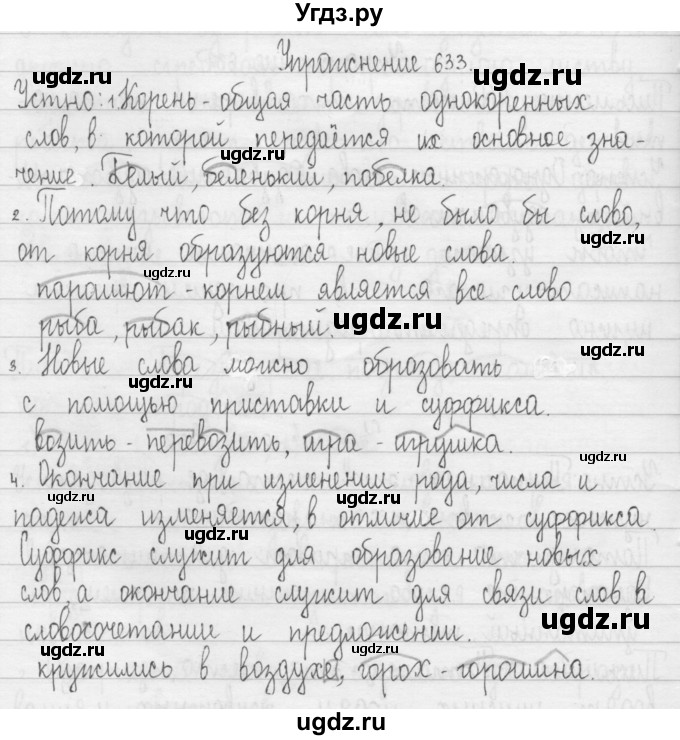 Угдз.ру
Упражнение 633.
ugdz.ru
ugdz.ru
ugdz.ru
Устно: 1. Корень - общая часть однокоренных
слов, в которой передаётся их основное зна-
ugdz.ru
чение. Белый, беленький, побелка.
ugdz.ru
ugdz.ru
2. Потому что без корня, не было бы слово,
от корня образуются новые слова.
ugdz.ru
парашют корнем является все слово
рыба, рыбак, рыбный.
ugdz.ru
ugdz.ru
3. Новые слова можно образовать
ugdz.ru
с помощью приставки и суффикса.
возить - перевозить, игра - игрушка.
ugdz.ru
4. Окончание при изменении рода, числа и
ugdz.ru
ugdz.ru
падежа изменяется, в отличие от суффикса.
ugdz.ru
Суффикс служит для образование новых
слов, а окончание служит для связи слов в
ugdz.ru
словосочетании и предложении.
ugdz.ru
ugdz.ru
кружились в воздухе, горох - горошина.
ugdz.ru
ugdz.ru